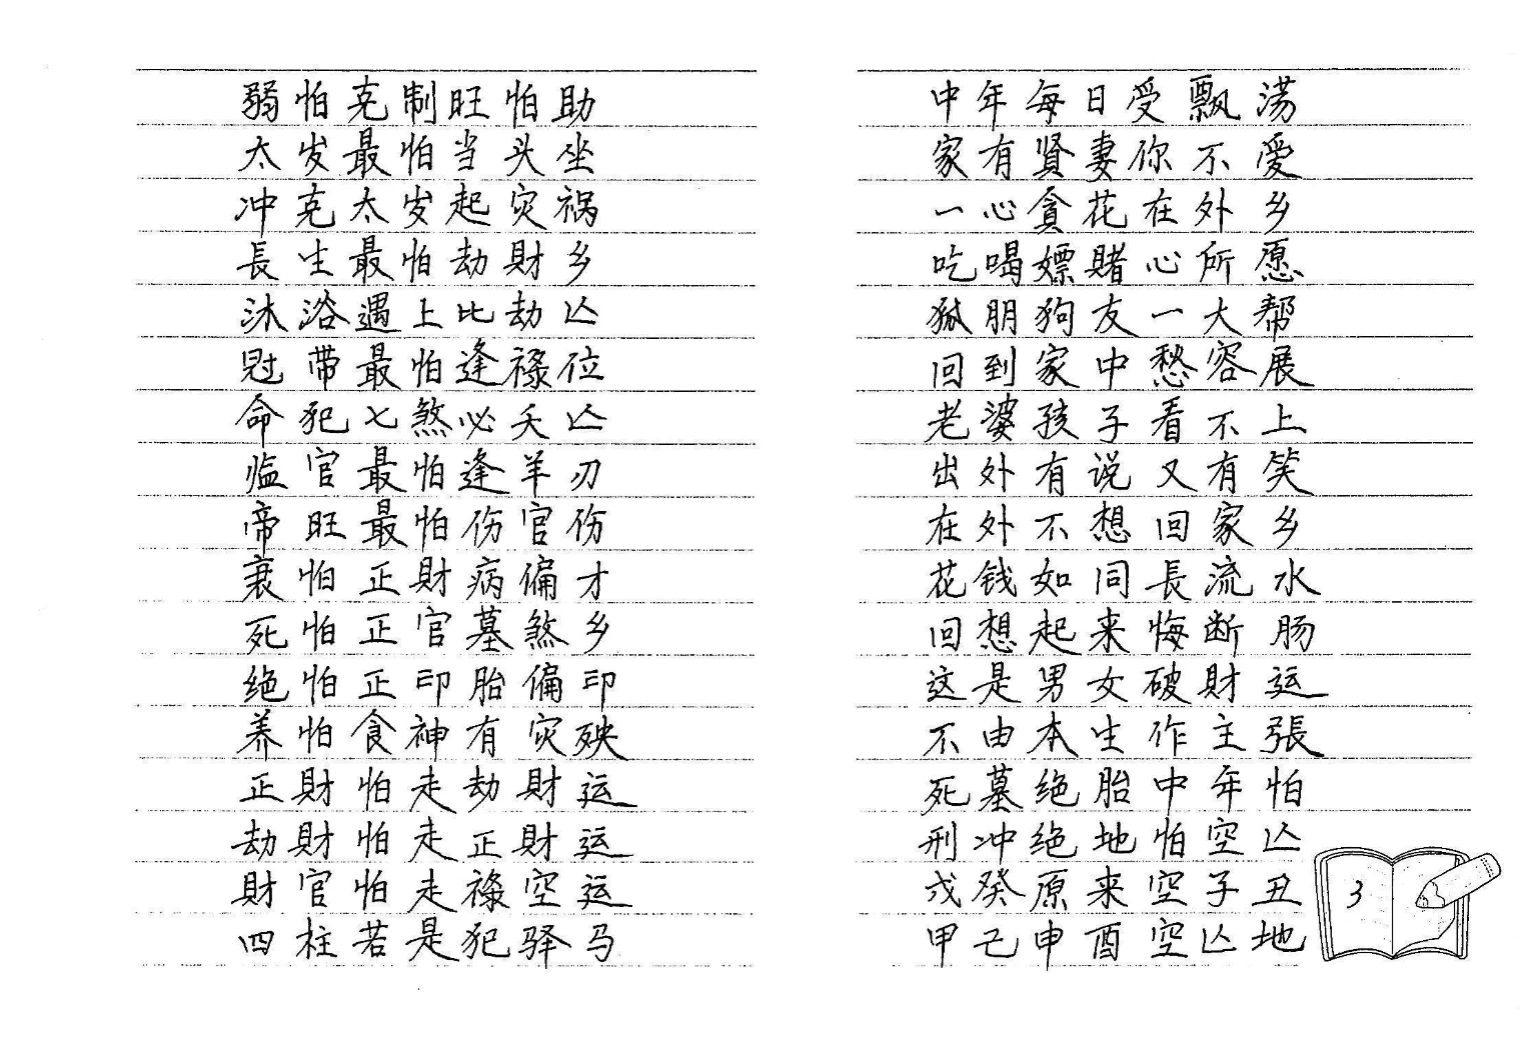 弱怕克制旺怕助
太岁最怕当头坐
冲克太岁起灾祸
長生最怕劫財乡
沐浴遇上比劫亾
冠带最怕逢祿位
命犯七煞必夭亾
临官最怕逢羊刃
帝旺最怕伤官伤
衰怕正財病偏才
死怕正官墓煞乡
绝怕正印胎偏印
养怕食神有灾殃
正財怕走劫財运
劫財怕走正財运
財官怕走祿空运
四柱若是犯驿马
中年每日受飘荡
家有贤妻你不愛
一心貪花在外乡
吃喝嫖賭心所愿
狐朋狗友一大帮
回到家中愁容展
老婆孩子看不上
出外有说又有笑
在外不想回家乡
花钱如同長流水
回想起来悔断肠
这是男女破財运
不由本生作主張
死墓绝胎中年怕
刑冲绝地怕空亾
戌癸原来空子丑
甲己申酉空亾地
3